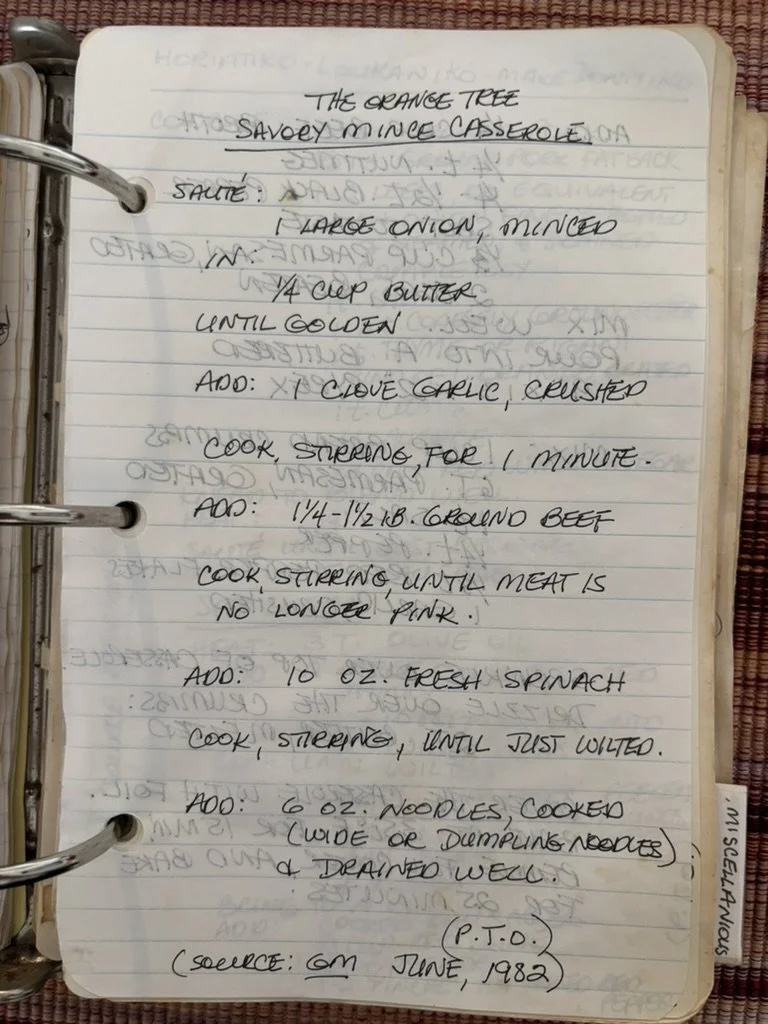 THE ORANGE TREE
SAVORY MINCE CASSEROLE
SAUTÉ:
1 LARGE ONION, MINCED
IN:
1/4 CUP BUTTER
UNTIL GOLDEN
ADD: 1 CLOVE GARLIC, CRUSHED
COOK, STIRRING, FOR 1 MINUTE.
ADD: 1 1/4 - 1 1/2 LB. GROUND BEEF
COOK, STIRRING, UNTIL MEAT IS
NO LONGER PINK.
ADD: 10 OZ. FRESH SPINACH
COOK, STIRRING, UNTIL JUST WILTED.
ADD: 6 OZ. NOODLES, COOKED
(WIDE OR DUMPLING NOODLES)
& DRAINED WELL.
(P.T.O.)
(SOURCE: GM JUNE, 1982)
MISCELLANIOUS